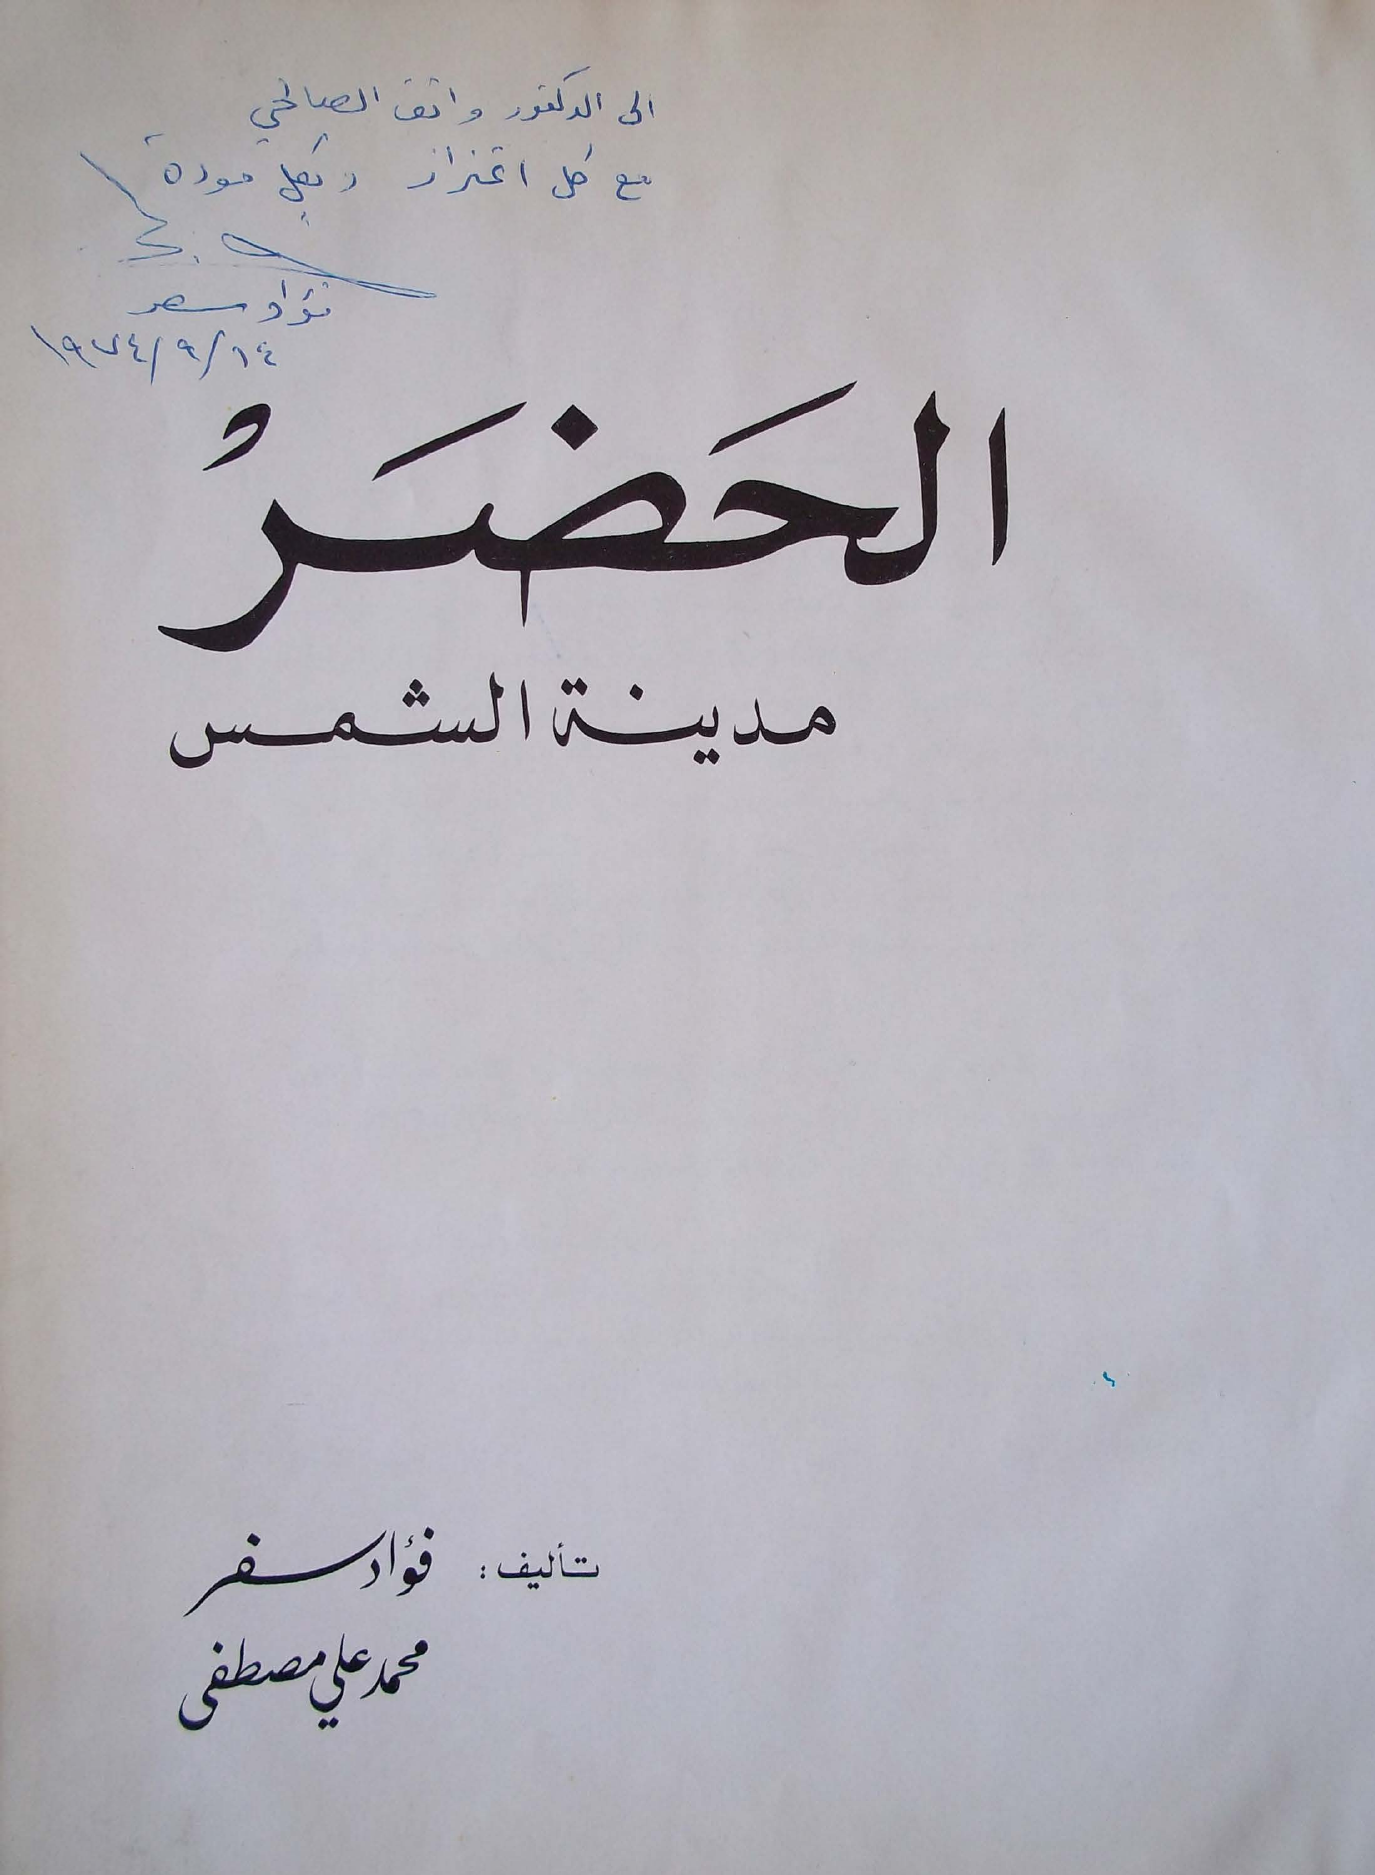 الى الدكتور واثق الصالحي
مع كل اعتزاز وبكل مودة
فؤاد سفر
١٩٧٤/٩/١٤
الحَضَرْ
مدينة الشمس
تأليف : فؤاد سفر
محمد علي مصطفى